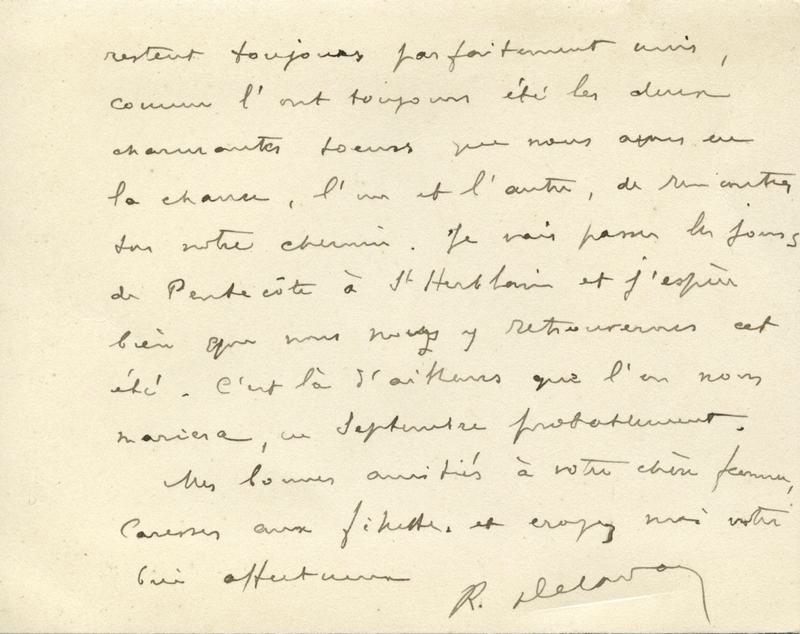 restent toujours parfaitement unis,
comme l'ont toujours été les deux
charmantes soeurs que nous avons eu
la chance, l'un et l'autre, de rencontrer
sur notre chemin. Je vais passer les jours
de Pentecôte à St Herblain et j'espère
bien que nous nous y retrouverons cet
été. C'est là d'ailleurs que l'on nous
mariera, en Septembre probablement.
Mes bonnes amitiés à votre chère femme,
Caresses aux fillettes. et croyez moi votre
bien affectueux
R.